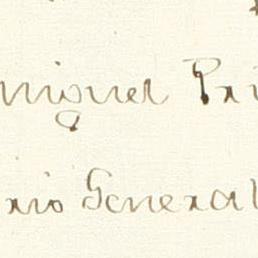 miguel Pri
rio General